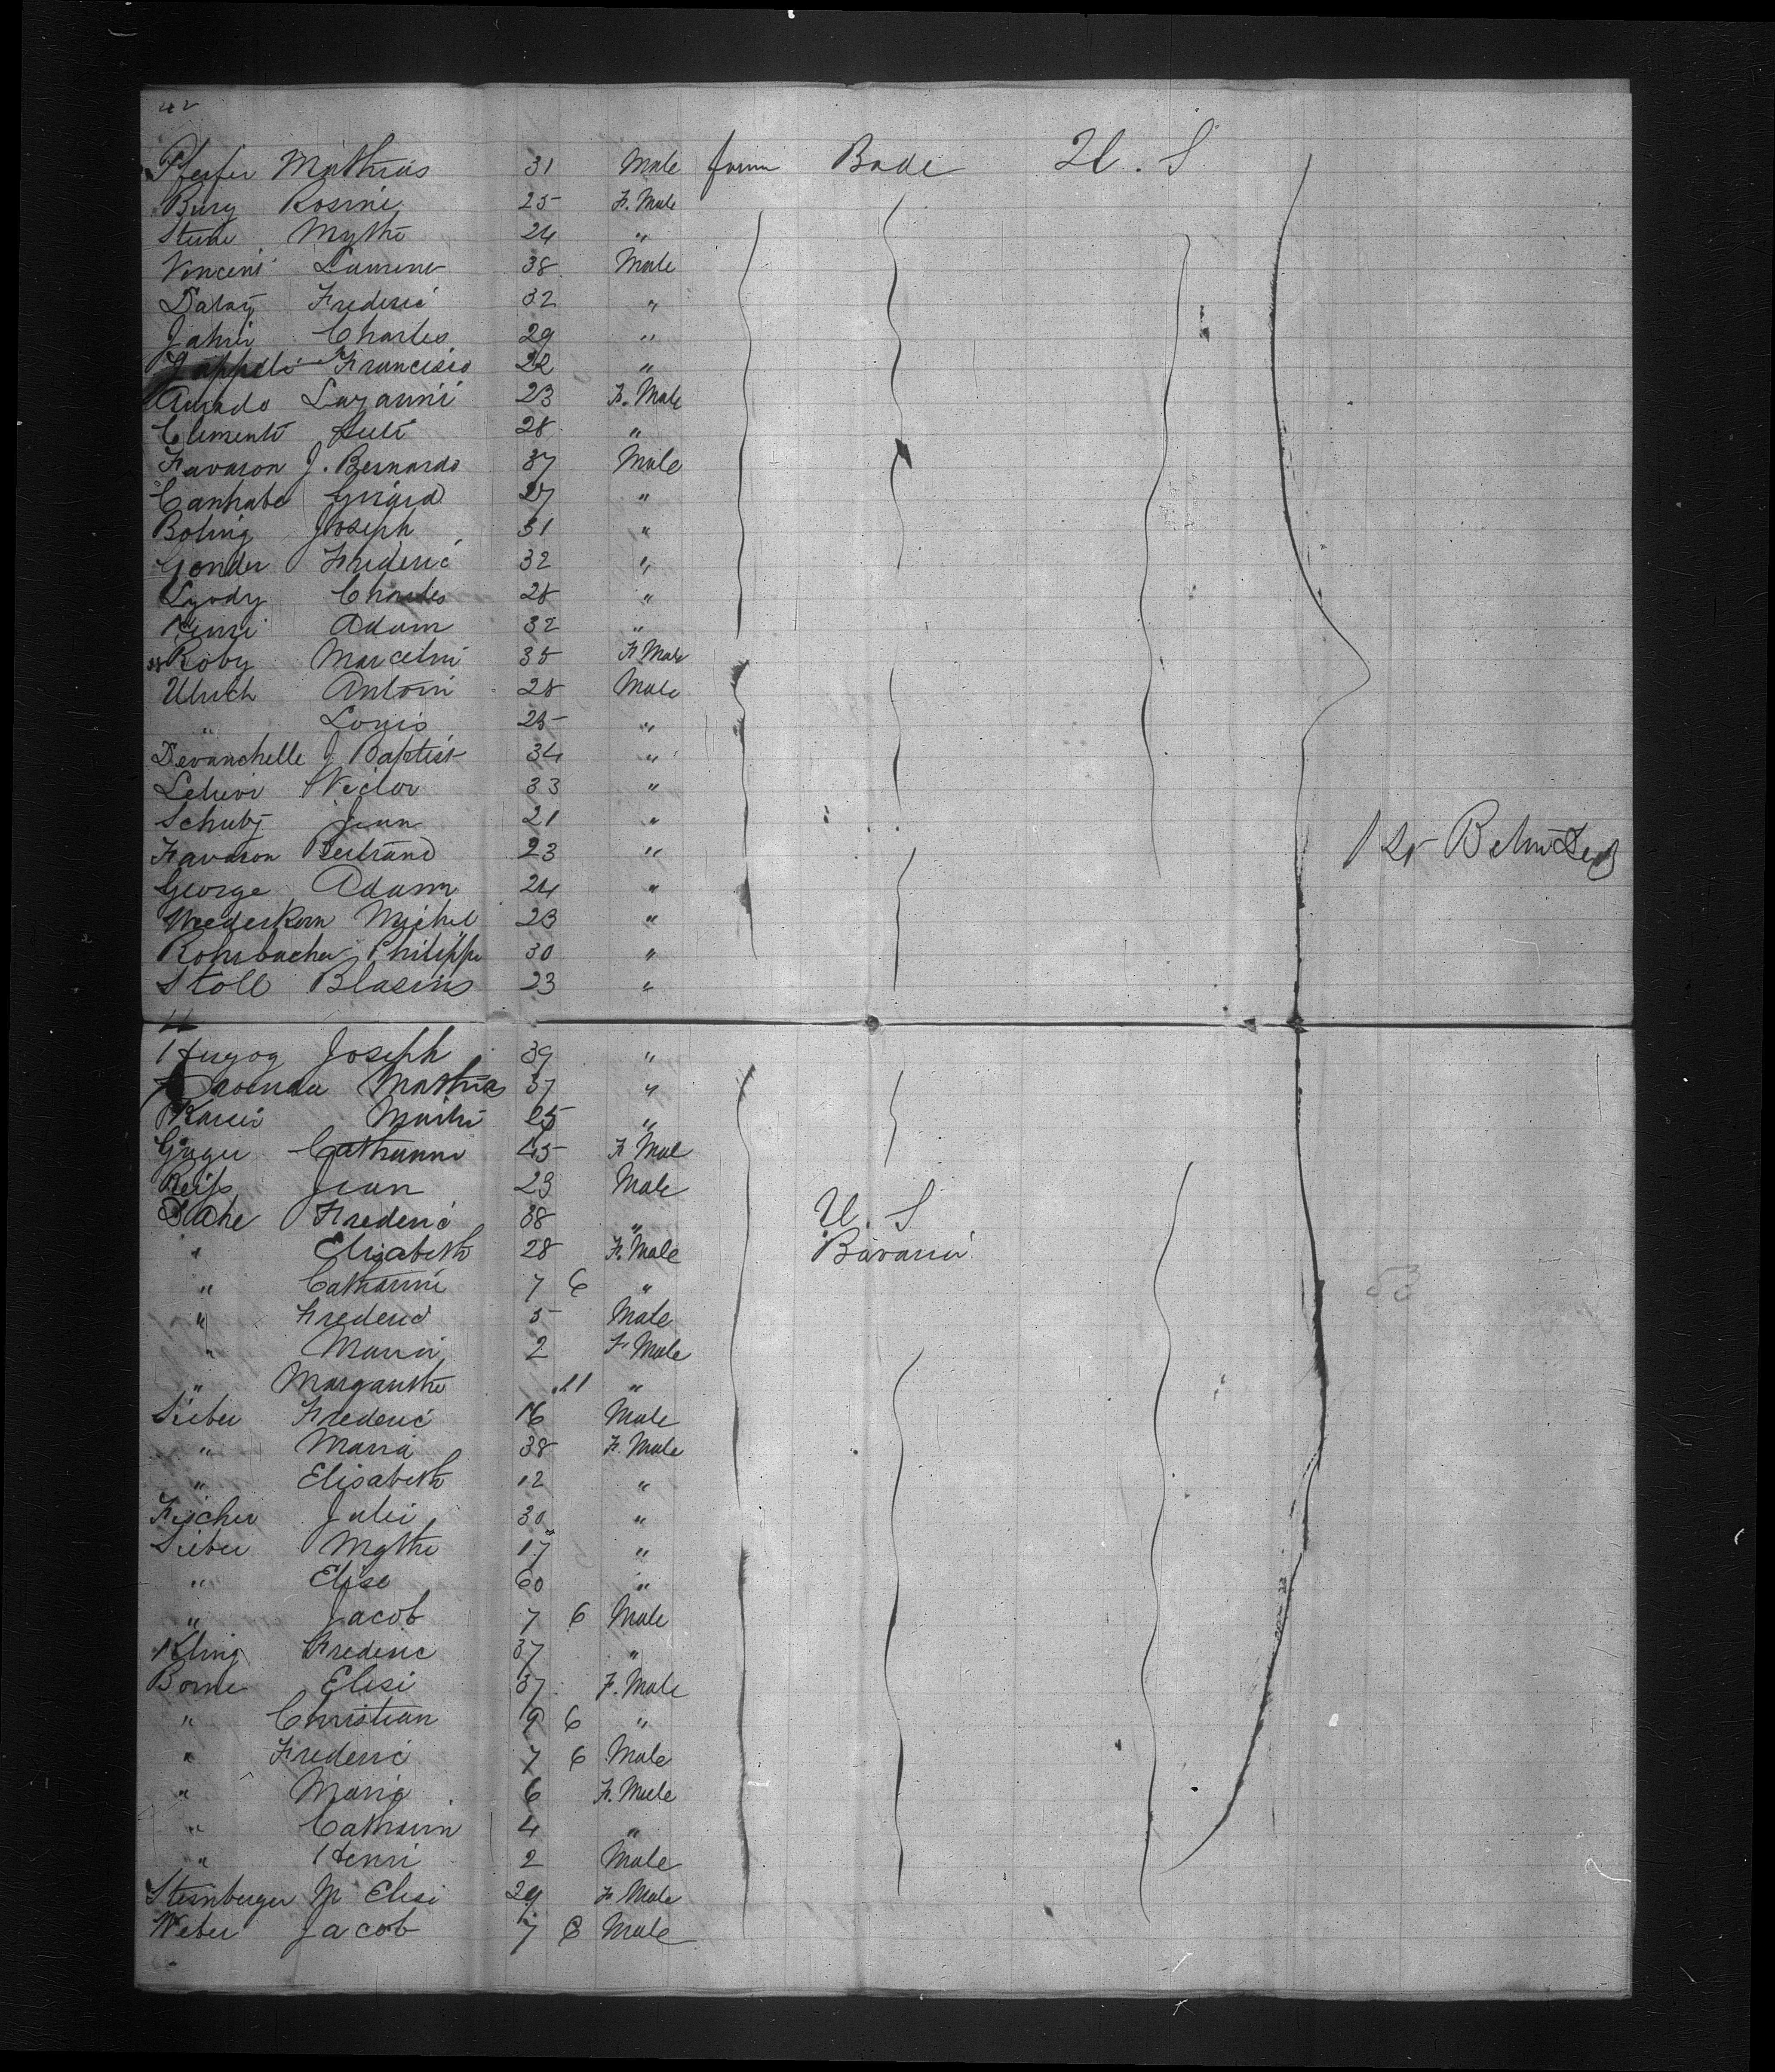 42
Pfeifer Mathias 31 Male farm Bade U. S
Burg Rosine 25 F. Male
Mgthe 24 "
Vincent 38 Male
Frederic 32 "
Charles 29 "
Francisco 22 "
Amado 23 F. Male
Clementi 28 "
Favason J. Bernardo 37 Male
Girard 27 "
Joseph 31 "
Gonder Frederic 32 "
Charles 28 "
Adam 32 "
Roby Marcelini 35 F Male
Ulrich Antoin 28 Male
" Louis 25 "
Devanchelle J Baptist 34 "
Victor 33 "
Schutz Jean 21 "
Favason Bertrand 23 "
George Adam 24 "
Wiederkorn Michel 23 "
Rohrbacher Philippe 30 "
Stoll Blasius 23 "
Herzog Joseph 39 "
Mathias 37 "
25 "
Catharina 45 F Male
Reiss Jean 23 Male
Frederic 38 " U. S
" Elisabeth 28 F. Male Bavaria
" Catharini 7 6 "
" Frederic 5 Male
" Maria 2 F Male
" Margarethe 11 "
Sieber Frederic 16 Male
" Maria 38 F. Male
" Elisabeth 12 "
Fischer Julie 30 "
Sieber Mgthe 17 "
" Elise 60 "
" Jacob 7 6 Male
Kling Frederic 37 "
Borne Elisi 37 F. Male
" Christian 9 6 "
" Frederic 7 6 Male
" Maria 6 F. Male
" Catharin 4 "
" Henri 2 Male
Sternberger M Elisi 29 F Male
Weber Jacob 7 6 Male